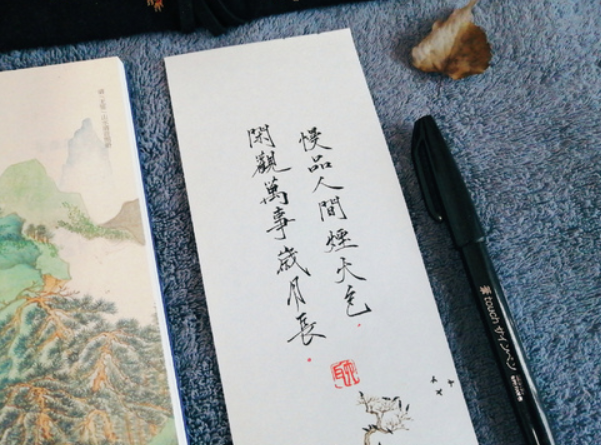 慢品人間煙火色
閑觀萬事歲月長
筆touchサインペン